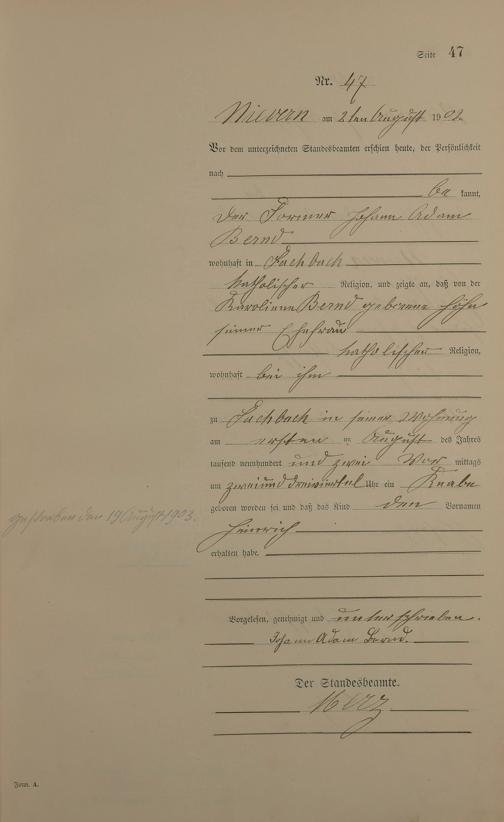 Seite 47
Nr. 47
Nievern am 2ten August 1902
Vor dem unterzeichneten Standesbeamten erschien heute, der Persönlichkeit
nach
be kannt,
der Former Johann Adam
Bernd
wohnhaft in Fachbach
katholischer Religion, und zeigte an, daß von der
Karoline Bernd geborene Höhn
seiner Ehefrau
katholischer Religion,
wohnhaft bei ihm
zu Fachbach in seiner Wohnung
am ersten August des Jahres
tausend neunhundert und zwei Vor mittags
um zweiunddreiviertel Uhr ein Knabe
geboren worden sei und daß das Kind den Vornamen
gestorben den 19 August 1903.
Heinrich
erhalten habe.
Vorgelesen, genehmigt und unterschrieben.
Johann Adam Bernd.
Der Standesbeamte.
Merz
Form. A.